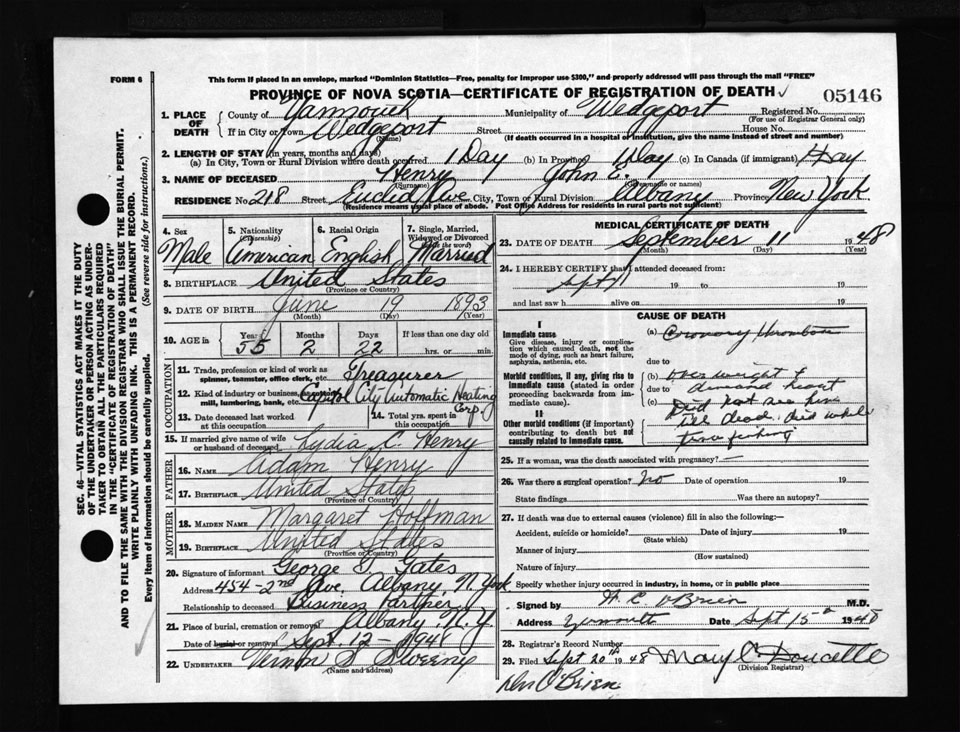 FORM 6
This form if placed in an envelope, marked "Dominion Statistics—Free, penalty for improper use $300," and properly addressed will pass through the mail "FREE"
PROVINCE OF NOVA SCOTIA—CERTIFICATE OF REGISTRATION OF DEATH ✓
05146
1. PLACE OF DEATH
County of Yarmouth Municipality of Wedgeport Registered No.
(For use of Registrar General only)
If in City or Town Wedgeport Street House No.
(Name) (If death occurred in a hospital or institution, give the name instead of street and number)
2. LENGTH OF STAY (in years, months and days)
(a) In City, Town or Rural Division where death occurred 1 Day (b) In Province 1 Day (c) In Canada (if immigrant) 1 Day
3. NAME OF DECEASED Henry John E.
(Surname) (Given name or names)
RESIDENCE No. 218 Street Euclid Ave City, Town or Rural Division Albany Province New York
(Residence means usual place of abode. Post Office Address for residents in rural parts not sufficient)
4. Sex Male
5. Nationality (Citizenship) American
6. Racial Origin English
7. Single, Married, Widowed or Divorced (Write the word) Married
8. BIRTHPLACE United States
(Province or Country)
9. DATE OF BIRTH June 19 1893
(Month) (Day) (Year)
10. AGE in Years Months Days If less than one day old
55 2 22 hrs. or min.
OCCUPATION
11. Trade, profession or kind of work as spinner, teamster, office clerk, etc. Treasurer
12. Kind of industry or business, as cotton mill, lumbering, bank, etc. Capitol City Automatic Heating Corp.
13. Date deceased last worked at this occupation
14. Total yrs. spent in this occupation
15. If married give name of wife or husband of deceased Lydia C. Henry
FATHER
16. Name Adam Henry
17. Birthplace United States
(Province or Country)
MOTHER
18. Maiden Name Margaret Hoffman
19. Birthplace United States
(Province or Country)
20. Signature of informant George S. Yates
Address 454-2nd Ave. Albany N. York
Relationship to deceased Business Partner
21. Place of burial, cremation or removal Albany N.Y.
Date of burial or removal Sept. 12 - 1948
22. Undertaker Vernon S. Sweeny
(Name and address)
MEDICAL CERTIFICATE OF DEATH
23. DATE OF DEATH September 11 1948
(Month) (Day) (Year)
24. I HEREBY CERTIFY that I attended deceased from:
Sept 19 to 19
and last saw h alive on 19
CAUSE OF DEATH
I
Immediate cause
Give disease, injury or complication which caused death, not the mode of dying, such as heart failure, asphyxia, asthenia, etc.
(a) Coronary Thrombosis
due to
Morbid conditions, if any, giving rise to immediate cause (stated in order proceeding backwards from immediate cause).
(b) overweight &
due to demand heart
(c) Did not see him
till dead. died while
tuna fishing
II
Other morbid conditions (if important) contributing to death but not causally related to immediate cause.
25. If a woman, was the death associated with pregnancy? —
26. Was there a surgical operation? No Date of operation 19
State findings Was there an autopsy?
27. If death was due to external causes (violence) fill in also the following:—
Accident, suicide or homicide? Date of injury 19
(State which)
Manner of injury
(How sustained)
Nature of injury
Specify whether injury occurred in industry, in home, or in public place
Signed by O'Brien M.D.
Address Yarmouth Date Sept 15 1948
28. Registrar's Record Number
29. Filed Sept 20th 1948 Mary Doucette
(Division Registrar)
O'Brien
SEC. 46—VITAL STATISTICS ACT MAKES IT THE DUTY
OF THE UNDERTAKER OR PERSON ACTING AS UNDERTAKER TO OBTAIN ALL THE PARTICULARS REQUIRED
IN THE "CERTIFICATE OF REGISTRATION OF DEATH"
AND TO FILE THE SAME WITH THE DIVISION REGISTRAR WHO SHALL ISSUE THE BURIAL PERMIT.
WRITE PLAINLY WITH UNFADING INK. THIS IS A PERMANENT RECORD.
Every item of information should be carefully supplied. (See reverse side for instructions.)